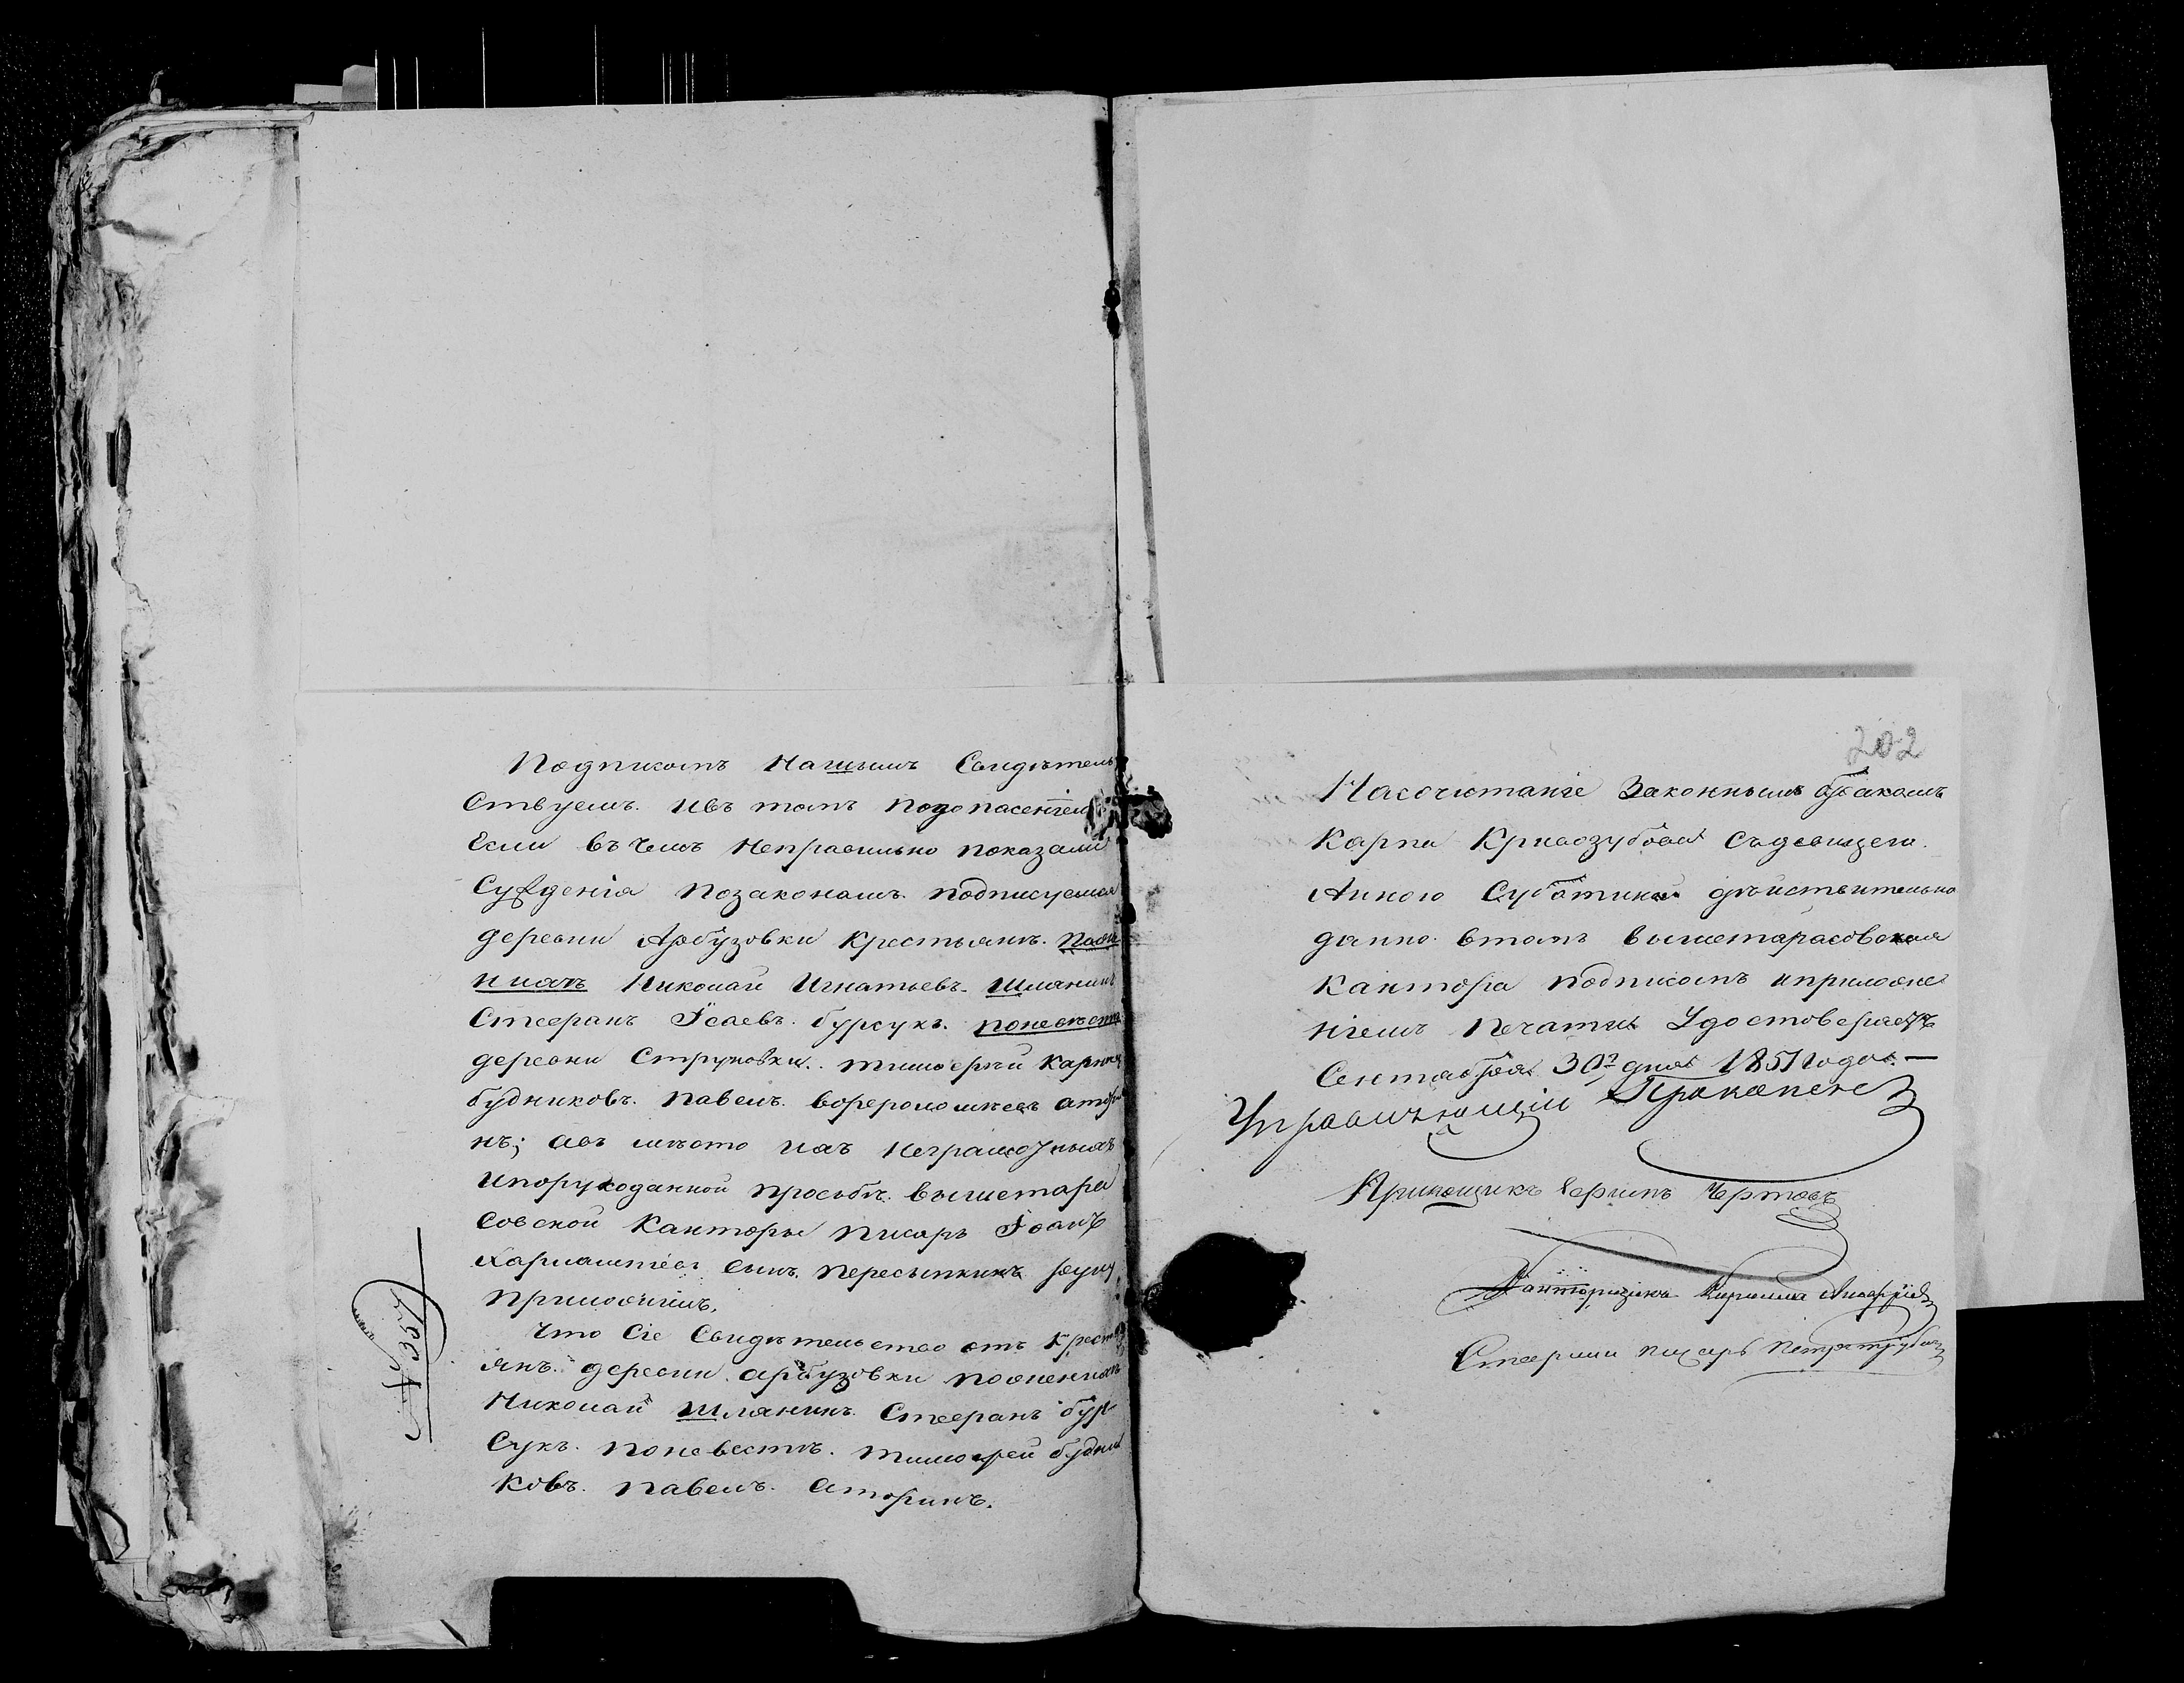 Подпискомъ Нашымъ Свидѣтель
Ствуемъ. ивъ томъ подопасенiемъ
Если въ чемъ Неправильно показали
Сужденiя позаконамъ. подписуемся
деревни Арбузовки крестьянъ. Поже
нихъ Николай Игнатьевъ. Шлянинъ
Стефанъ Iсаевъ. бурсукъ. поневѣстѣ
деревни Струковки. тимофей Карповъ
будниковъ. павелъ. ворфоломѣевъ
нъ; авъ мѣсто ихъ Неграмотныхъ
ипорукоданной прозбѣ. вышетара
совской Канторы писарь Iоанъ
сынъ. пересыпкинъ руку
приложилъ.
Что Сiе Свидѣтельство отъ крестъ
янъ. деревни арбузовки поженихѣ
Николай Шлянинъ. Стефанъ бур-
Сукъ. поневестѣ. тимофей будни
ковъ. павелъ.
202
Насочютанiе Законнымъ бракомъ
Карпа Кривозубова Съдевицею
Анною Суботиной дѣйствительно
данно. втомъ вышетарасовская
Кантора подпискомъ иприложе
нiемъ печати Удостоверяетъ
Сентября 30го дня 1851 года.—
Управляющiй
Прикащикъ Чертовъ
Канторщикъ Кирилла
писарь